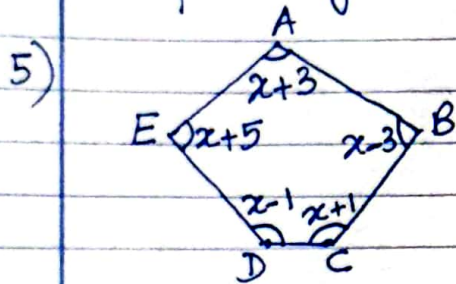 A
5)
x+3
E x+5 x-3 B
x-1 x+1
D C